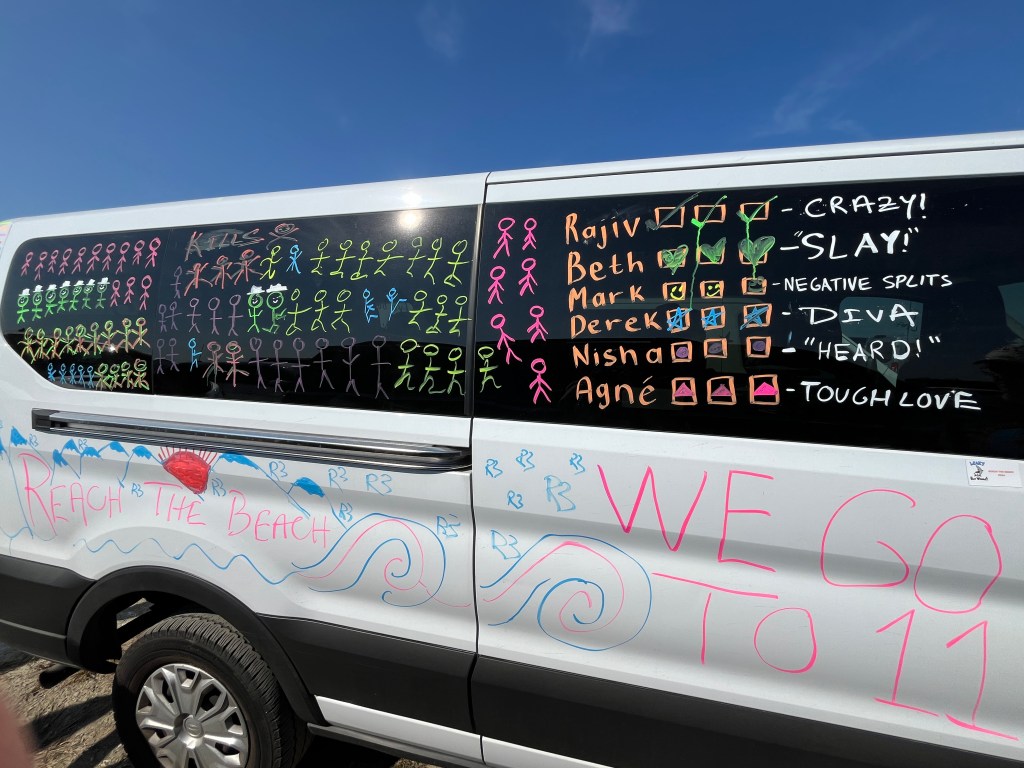 KILLS
Rajiv - CRAZY!
Beth - "SLAY!"
Mark - NEGATIVE SPLITS
Derek - DIVA
Nisha - "HEARD!"
Agné - TOUGH LOVE
REACH THE BEACH
R3 R3 R3 R3
R3 R3 R3
R3 R3
R3
WE GO
TO 11